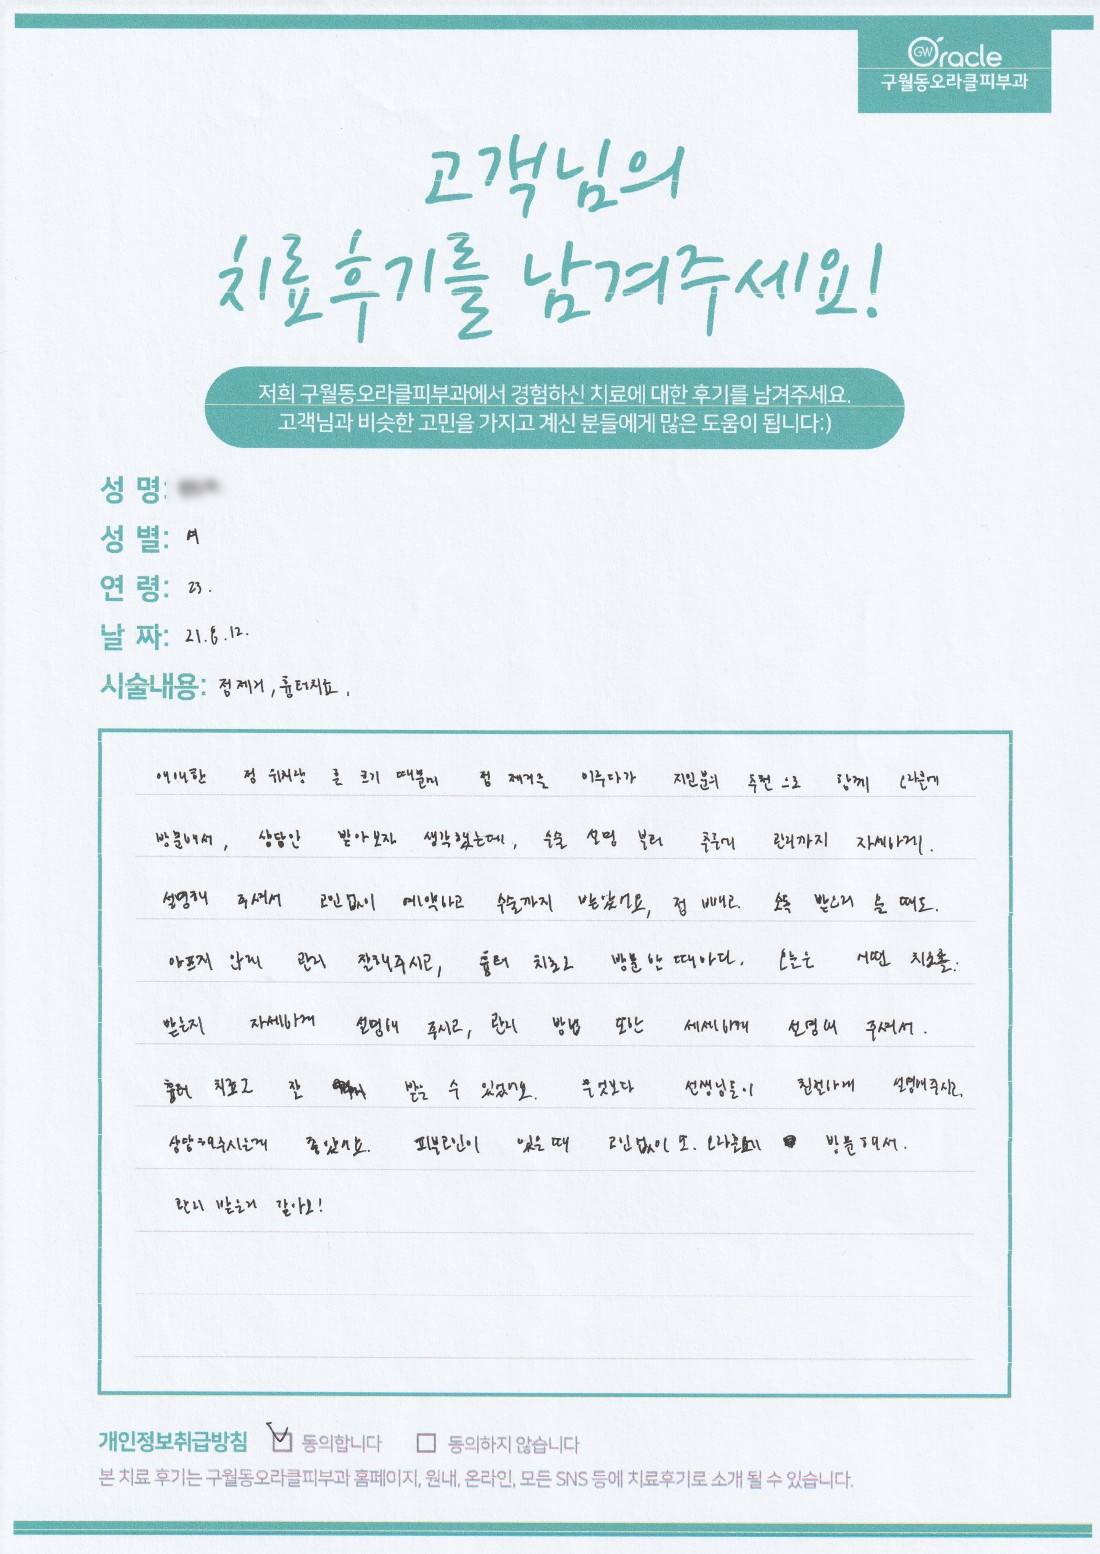 GW Oracle
구월동오라클피부과
고객님의
치료후기를 남겨주세요!
저희 구월동오라클피부과에서 경험하신 치료에 대한 후기를 남겨주세요.
고객님과 비슷한 고민을 가지고 계신 분들에게 많은 도움이 됩니다:)
성 명:
성 별: 여
연 령: 23.
날 짜: 21.8.12.
시술내용: 점제거, 흉터치료.
애매한 점 위치랑 큰 크기 때문에 점 제거를 미루다가 지인분의 추천으로 함께 오라클에
방문해서, 상담만 받아보자 생각했는데, 수술 설명 부터 추후에 관리까지 자세하게.
설명해 주셔서 고민없이 예약하고 수술까지 받았어요, 점 빼고. 소독 받으러 올 때도.
아프지 않게 관리 잘해주시고, 흉터 치료로 방문할 때마다. 오늘은 어떤 치료를.
받는지 자세하게 설명해 주시고, 관리 방법 또한 세세하게 설명해 주셔서.
흉터 치료도 잘 받을 수 있었어요. 무엇보다 선생님들이 친절하게 설명해주시고,
상담해주시는게 좋았어요. 피부고민이 있을 때 고민없이 또. 오라클에 방문해서.
관리 받을거 같아요!
개인정보취급방침 동의합니다 동의하지 않습니다
본 치료 후기는 구월동오라클피부과 홈페이지, 원내, 온라인, 모든 SNS 등에 치료후기로 소개 될 수 있습니다.